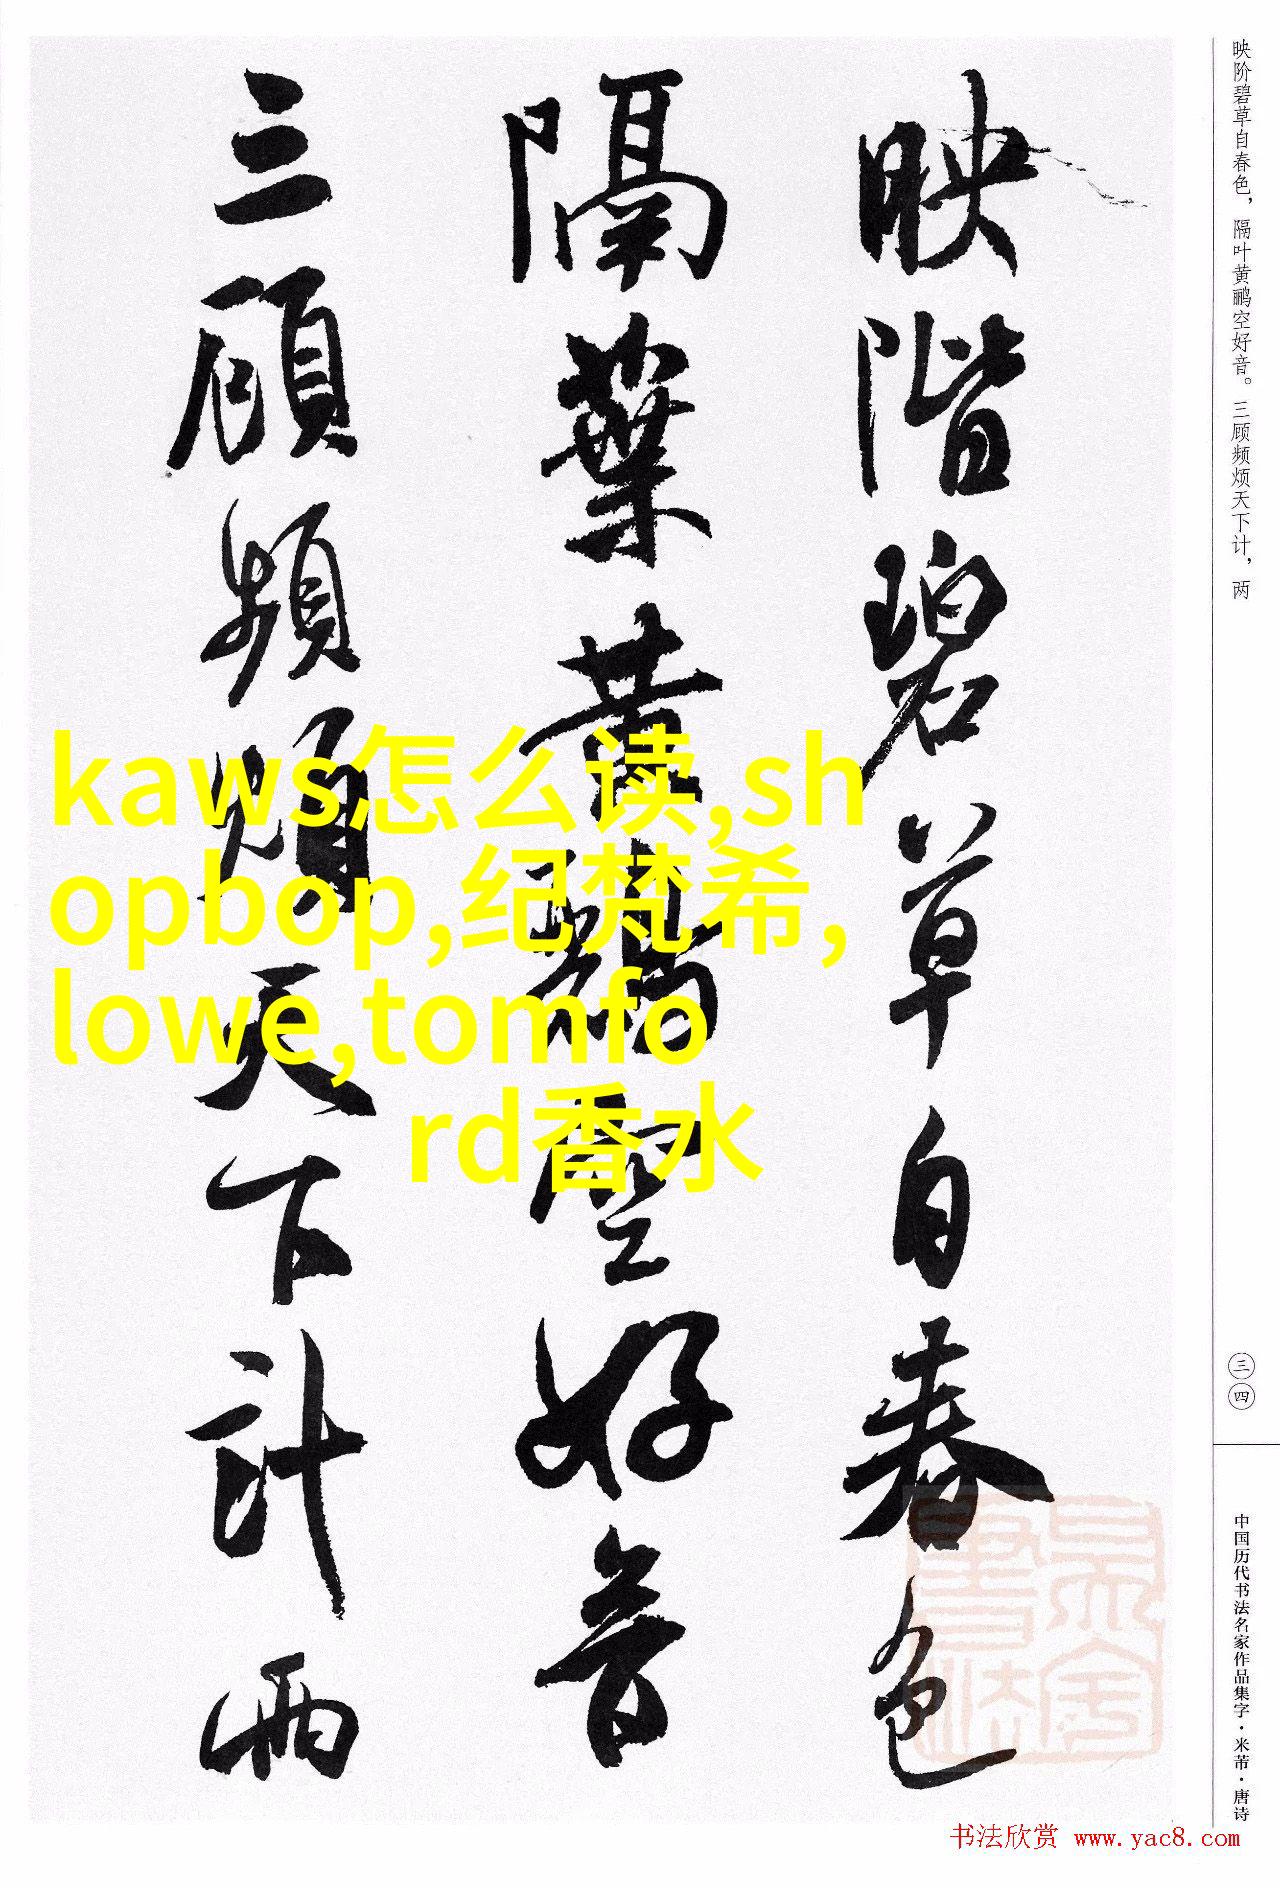 映階碧草自春色
隔葉黄鸝空好音
三顧頻煩天下計兩
kaws怎么读,sh
opbop,纪梵希,
lowe,tomfo
rd香水
映阶碧草自春色，隔叶黄鹂空好音。三顾频烦天下计，两
三四
中国历代书法名家作品集字·米芾·唐诗
书法欣赏 www.yac8.com